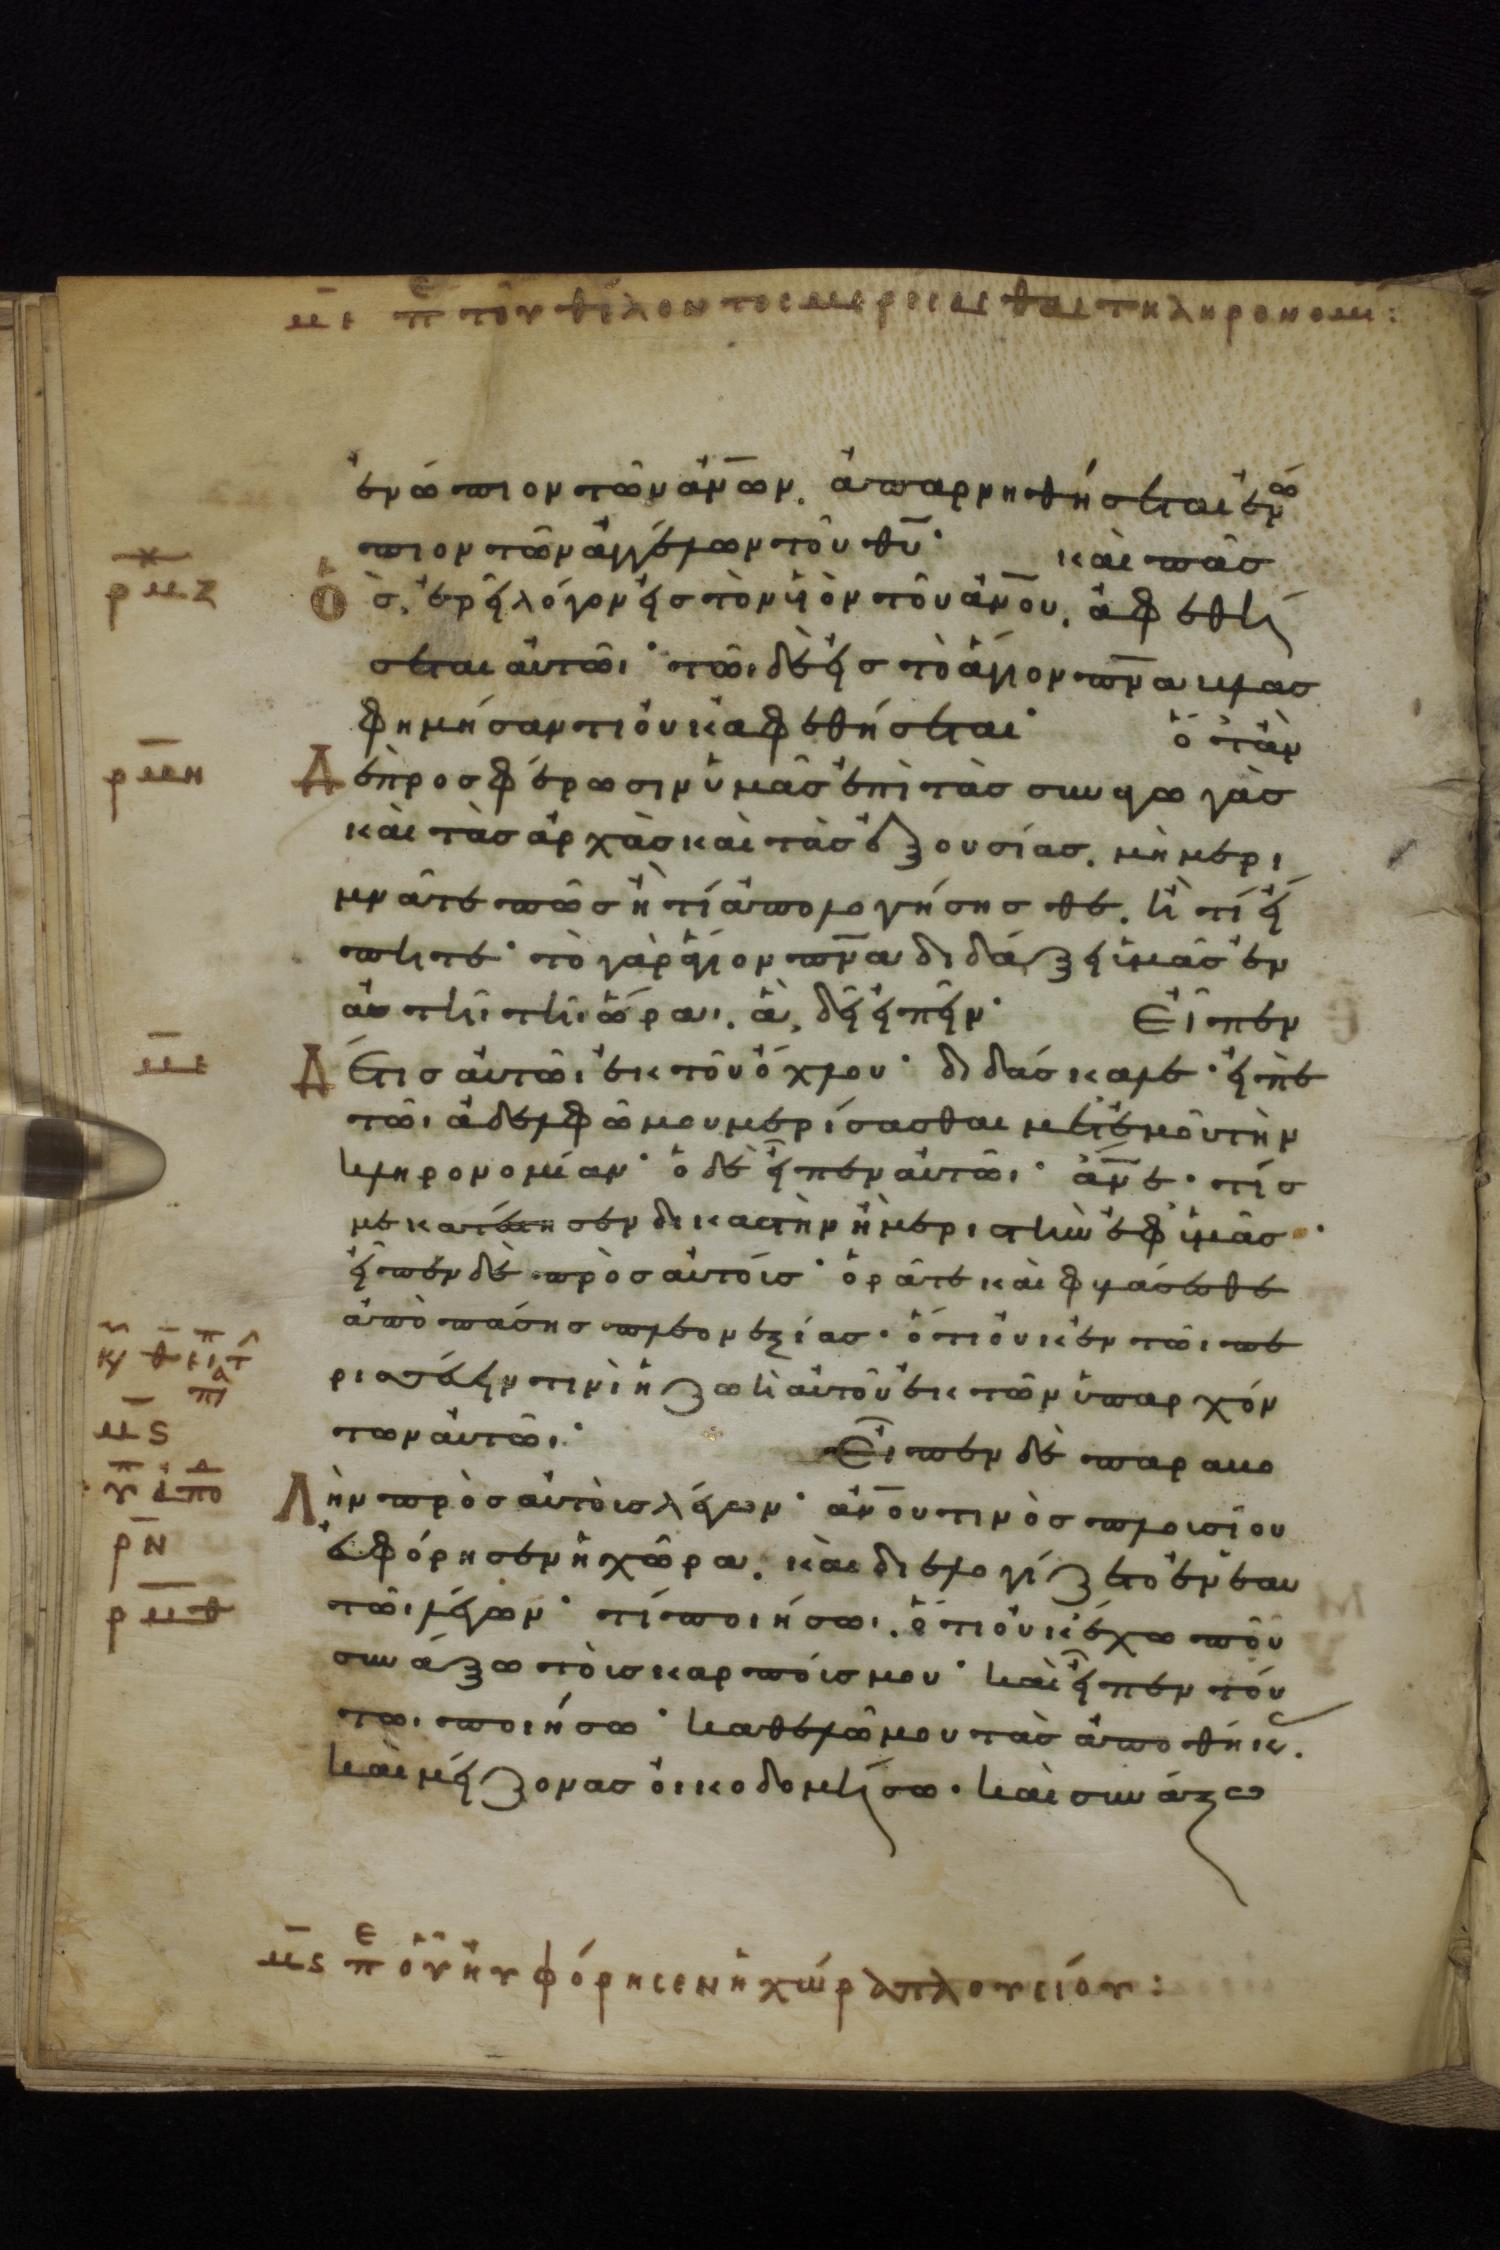 με περὶ τοῦ θέλοντος μερίσασθαι τ κληρονομί:
ἐνώπιον τῶν ἀν̅ων. ἀπαρνηθήσεται ἐνώ
πιον τῶν ἀγγέλων τοῦ θ̅υ· καὶ πᾶσ
ρμζ Ὁ ὃσ, ἐρεῖ λόγον εἰσ τὸν υἱὸν τοῦ ἀν̅ου. ἀφεθή
σεται αὐτῶι· τῶι δὲ εἰσ τὸ ἅγιον πν̅α βλασ
φημήσαντι οὐκ ἀφεθήσεται· ὅταν
ρμη Δ ὲ προσφέρωσιν ὑμᾶσ ἐπὶ τὰσ συναγωγὰσ
καὶ τὰσ ἀρχὰσ καὶ τὰσ ἐξουσίασ. μὴ μερι
μνᾶτε πῶσ ἢ τί ἀπολογήσησθε. ἢ τί εἴ
πητε· τὸ γὰρ ἅγιον πν̅α διδάξει ὑμᾶσ ἐν
αὐτῆι τῆι ὥραι. ἃ, δεῖ εἰπεῖν· Εἶπεν
με Δ έ τισ αὐτῶι ἐκ τοῦ ὄχλου· διδάσκαλε· εἰπὲ
τῶι ἀδελφῶ μου μερίσασθαι μετ' ἐμοῦ τὴν
κληρονομίαν· ὁ δὲ εἶπεν αὐτῶι· ἄν̅ε· τίσ
με κατέστησεν δικαστὴν ἢ μεριστὴν ἐφ' ὑμᾶσ·
εἶπεν δὲ πρὸσ αὐτούσ· ὁρᾶτε καὶ φυλάσσεσθε
ἀπὸ πάσησ πλεονεξίασ· ὅτι οὐκ ἐν τῶι πε
ρισσεύειν τινὶ ἡ ζωὴ αὐτοῦ ἐκ τῶν ὑπαρχόν
των αὐτῶι· Εἶπεν δὲ παραβο
μϛ Λ ὴν πρὸσ αὐτοὺσ λέγων· ἀν̅ου τινὸσ πλουσίου
ρν εὐφόρησεν ἡ χώρα. καὶ διελογίζετο ἐν ἑαυ
ρμθ τῶι λέγων· τί ποιήσωι. ὅτι οὐκ ἔχω ποῦ
συνάξω τοὺσ καρπούσ μου· καὶ εἶπεν τοῦ
το· ποιήσω· καθελῶ μου τὰσ ἀποθήκ.
καὶ μείζονασ οἰκοδομήσω· καὶ συνάξω
μϛ περὶ οὗ ηὐφόρησεν ἡ χώρα πλουσίου: